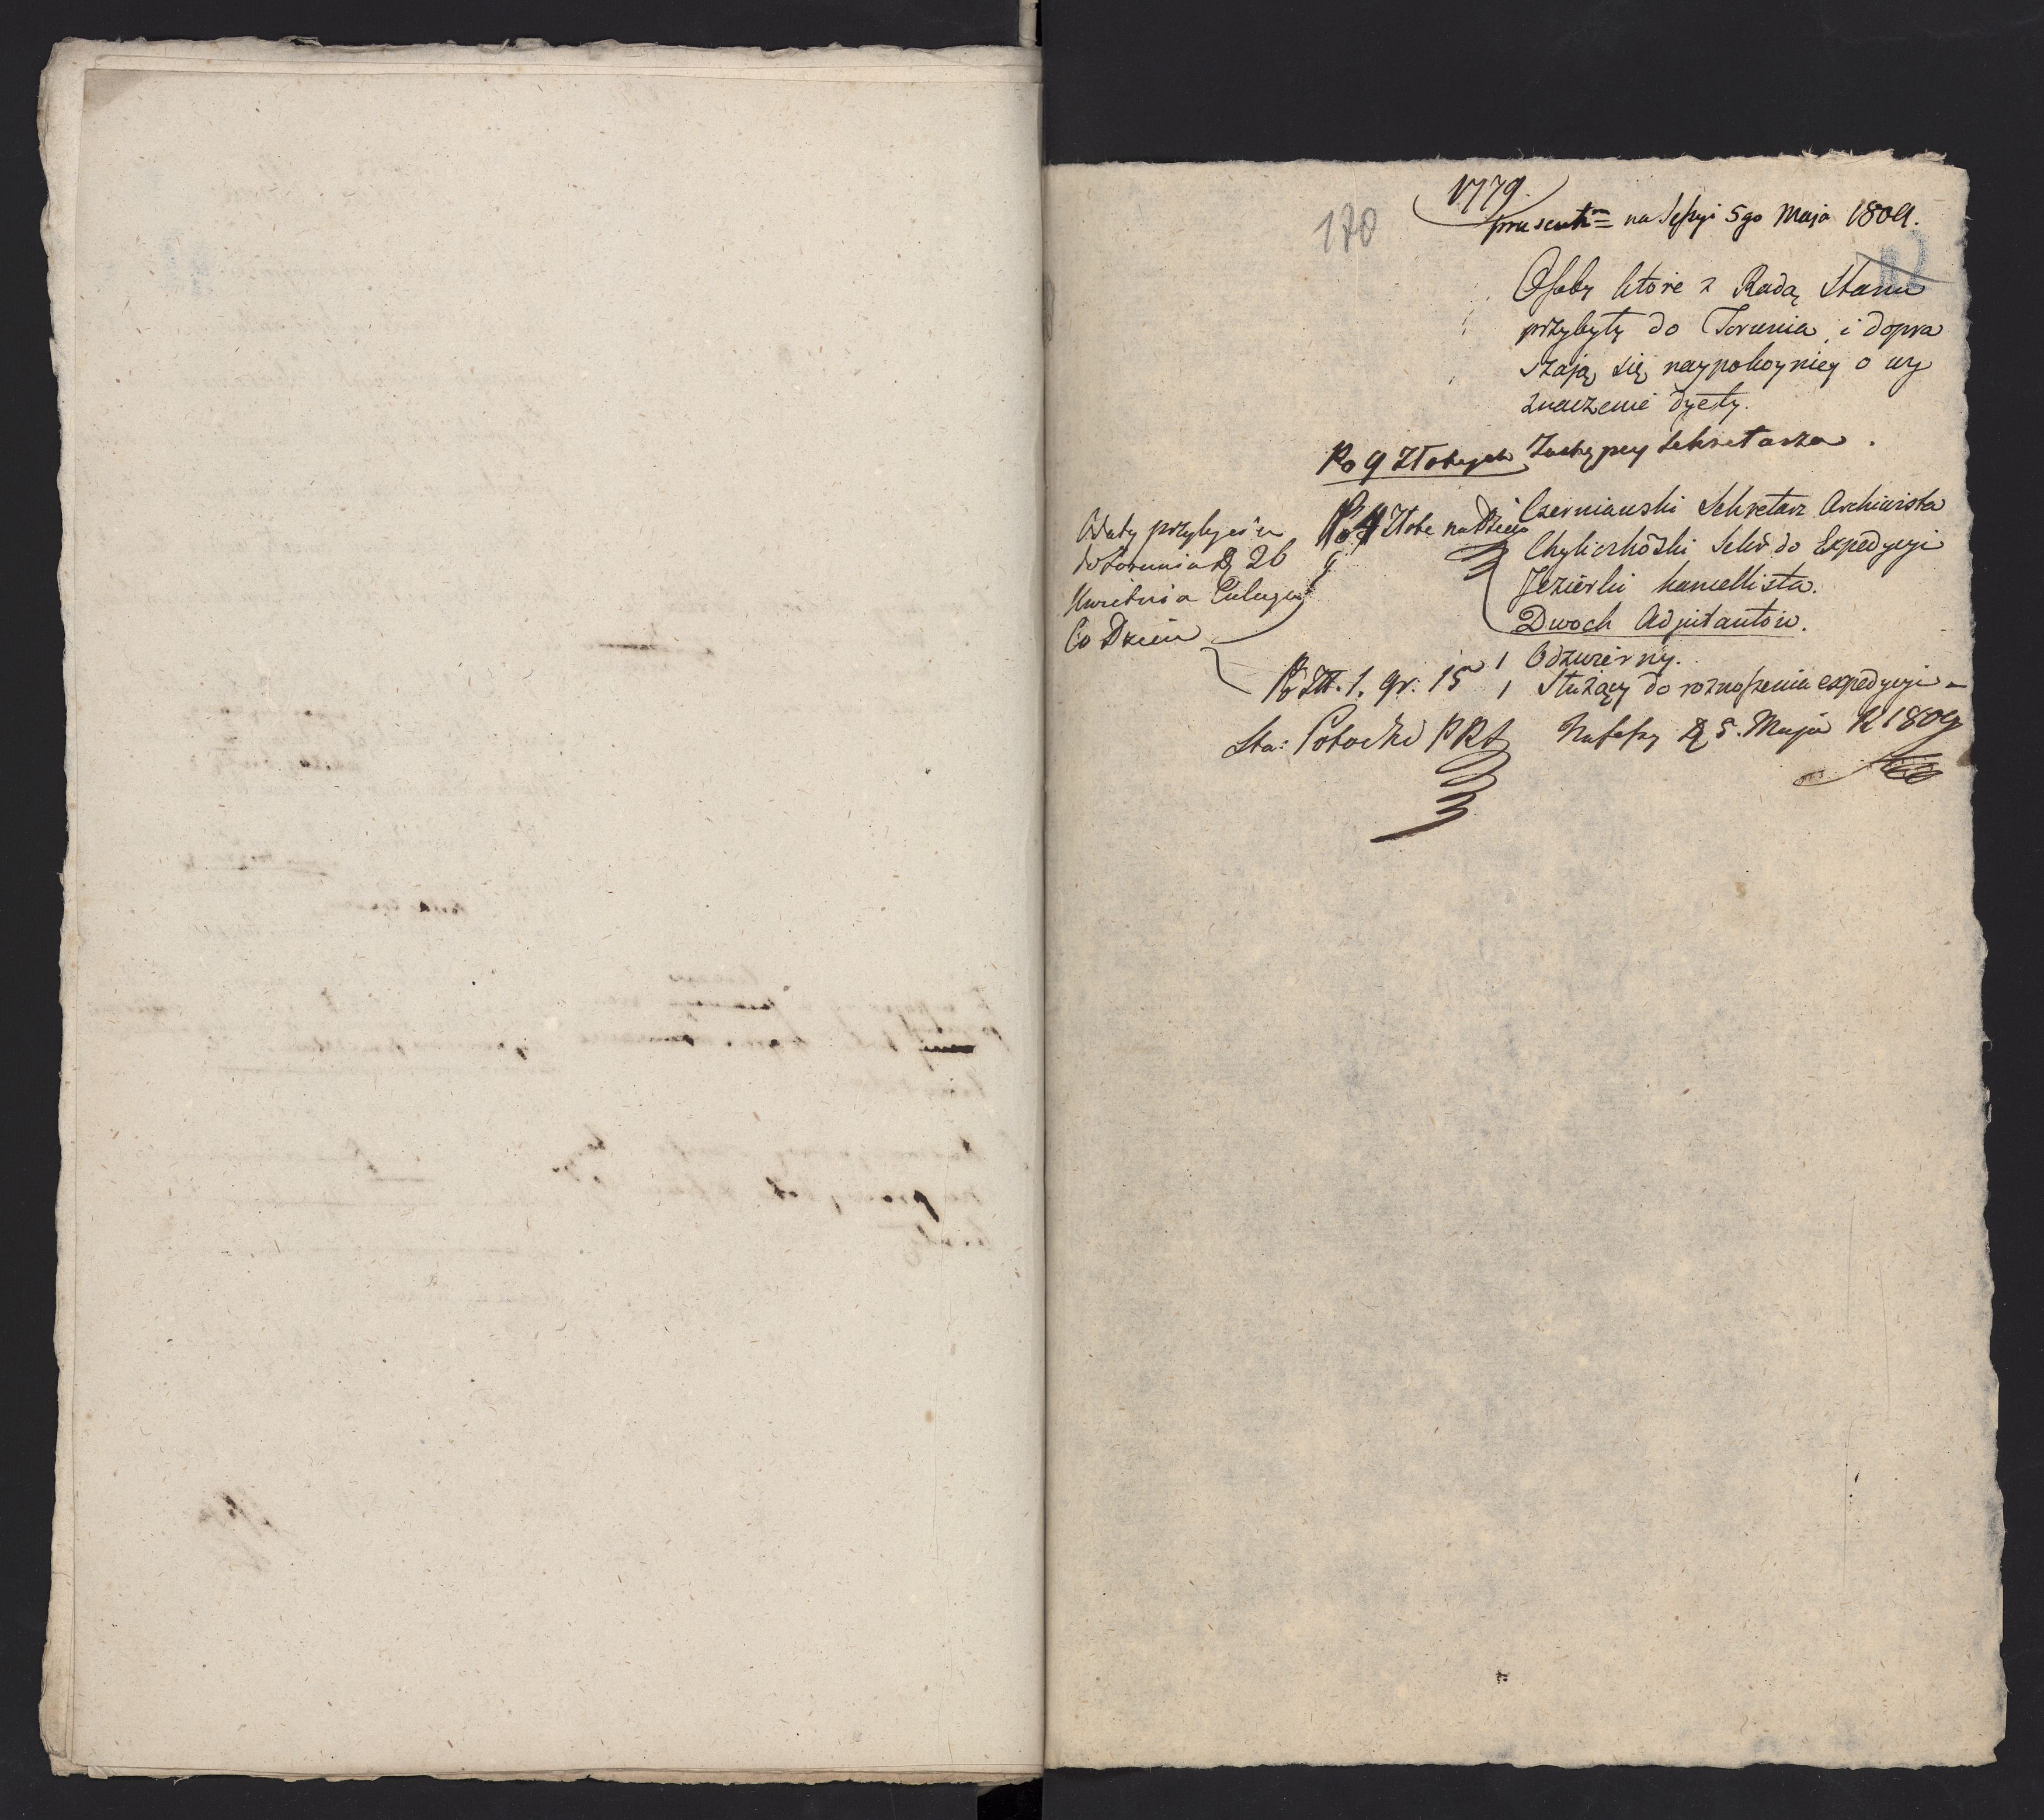 1779.
170
praesent: na Sessyi 5go Maja 1809.
Osoby które z Radą Stanu
przybyły do Torunia, i dopra
szają się naypokorniey o wy
znaczenie dyety.
Po 9 Złotych Zastępcy Sekretarza.
Czerniawski Sekretarz Archiwista
Po 4 Złote na Dzień
Chyliczkoski Sekr. do Expedycyi
Jezierski kancellista.
Dwoch Adjutantów.
Daty przybycia
do Torunia D 26
Kwietnia
Co Dzień
1 Odzwierny.
Po Zł. 1. gr. 15 1 Służący do roznoszenia expedycyi
Sta: Potocki PRS Na Sessy D 5. Maja R 1809